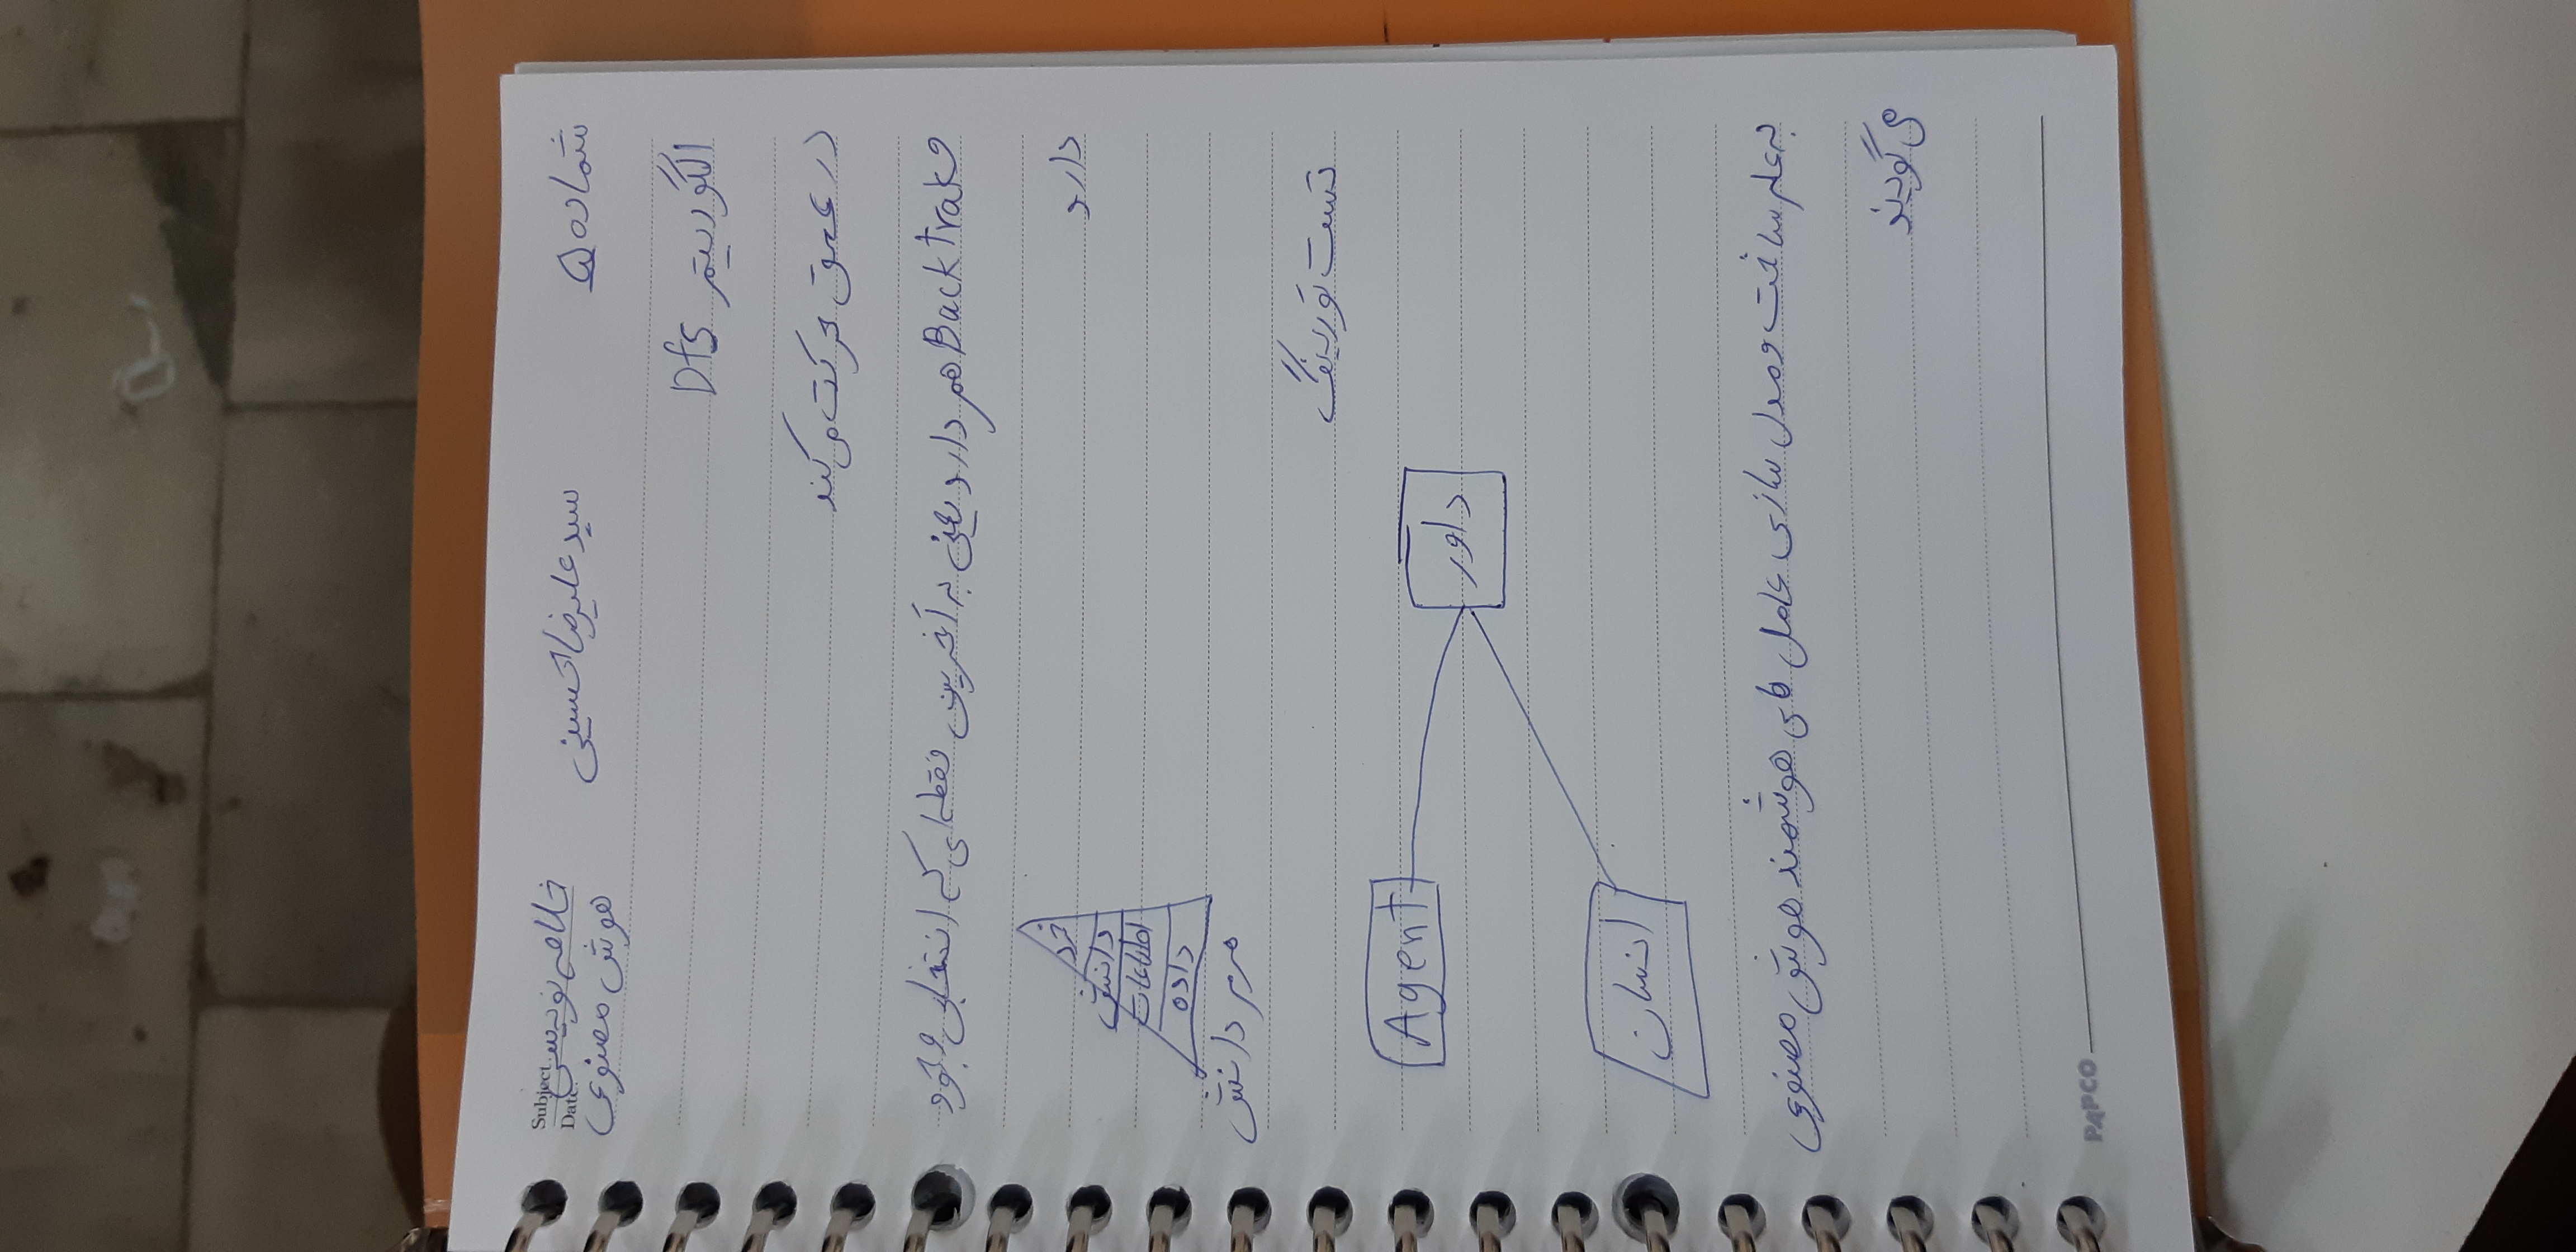 شماره ۵ سید علیرضا حسینی خلاصه نویسی
Subject.
Date.
هوش مصنوعی
الگوریتم Dfs
در عمق حرکت می کند
و Backtrak هم دارد یعنی به آخرین نقطه ای که انتخابی وجود
دارد
خرد
دانش
اطلاعات
داده
هرم دانش
تست تورینگ
Agent
داور
انسان
به علم ساخت و مدل سازی عامل های هوشمند هوش مصنوعی
می گویند
PAPCO